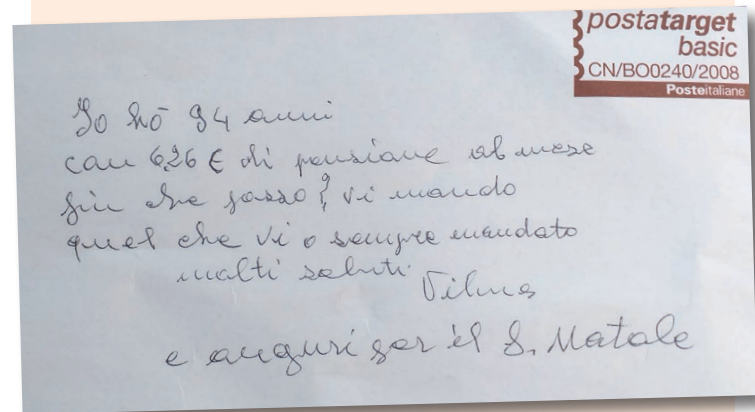 postatarget
basic
CN/BO0240/2008
Posteitaliane
Io hò 94 anni
con 626 € di pensione al mese
fin che posso vi mando
quel che vi o sempre mandato
molti saluti
Vilma
e auguri per il S. Natale